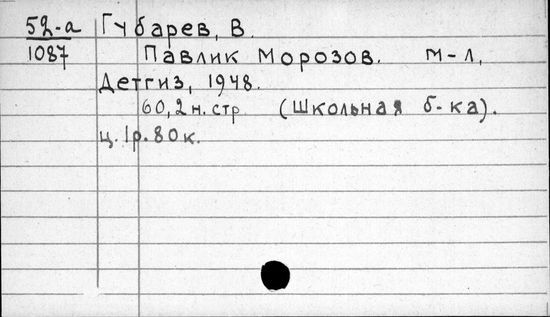 52-а Губарев, В.
1087 Павлик Морозов. М-Л,
Детгиз, 1948.
60,2 н. стр. (Школьная б-ка).
ц. 1р. 80 к.